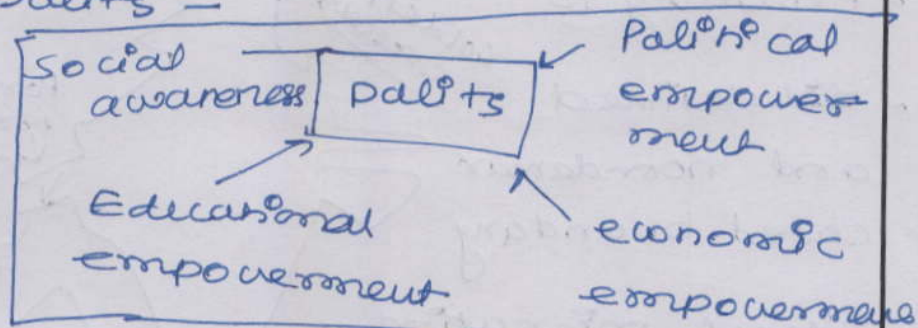 Dalits –
Social
awareness
Dalits
Political
empower-
ment
Educational
empowerment
economic
empowerment